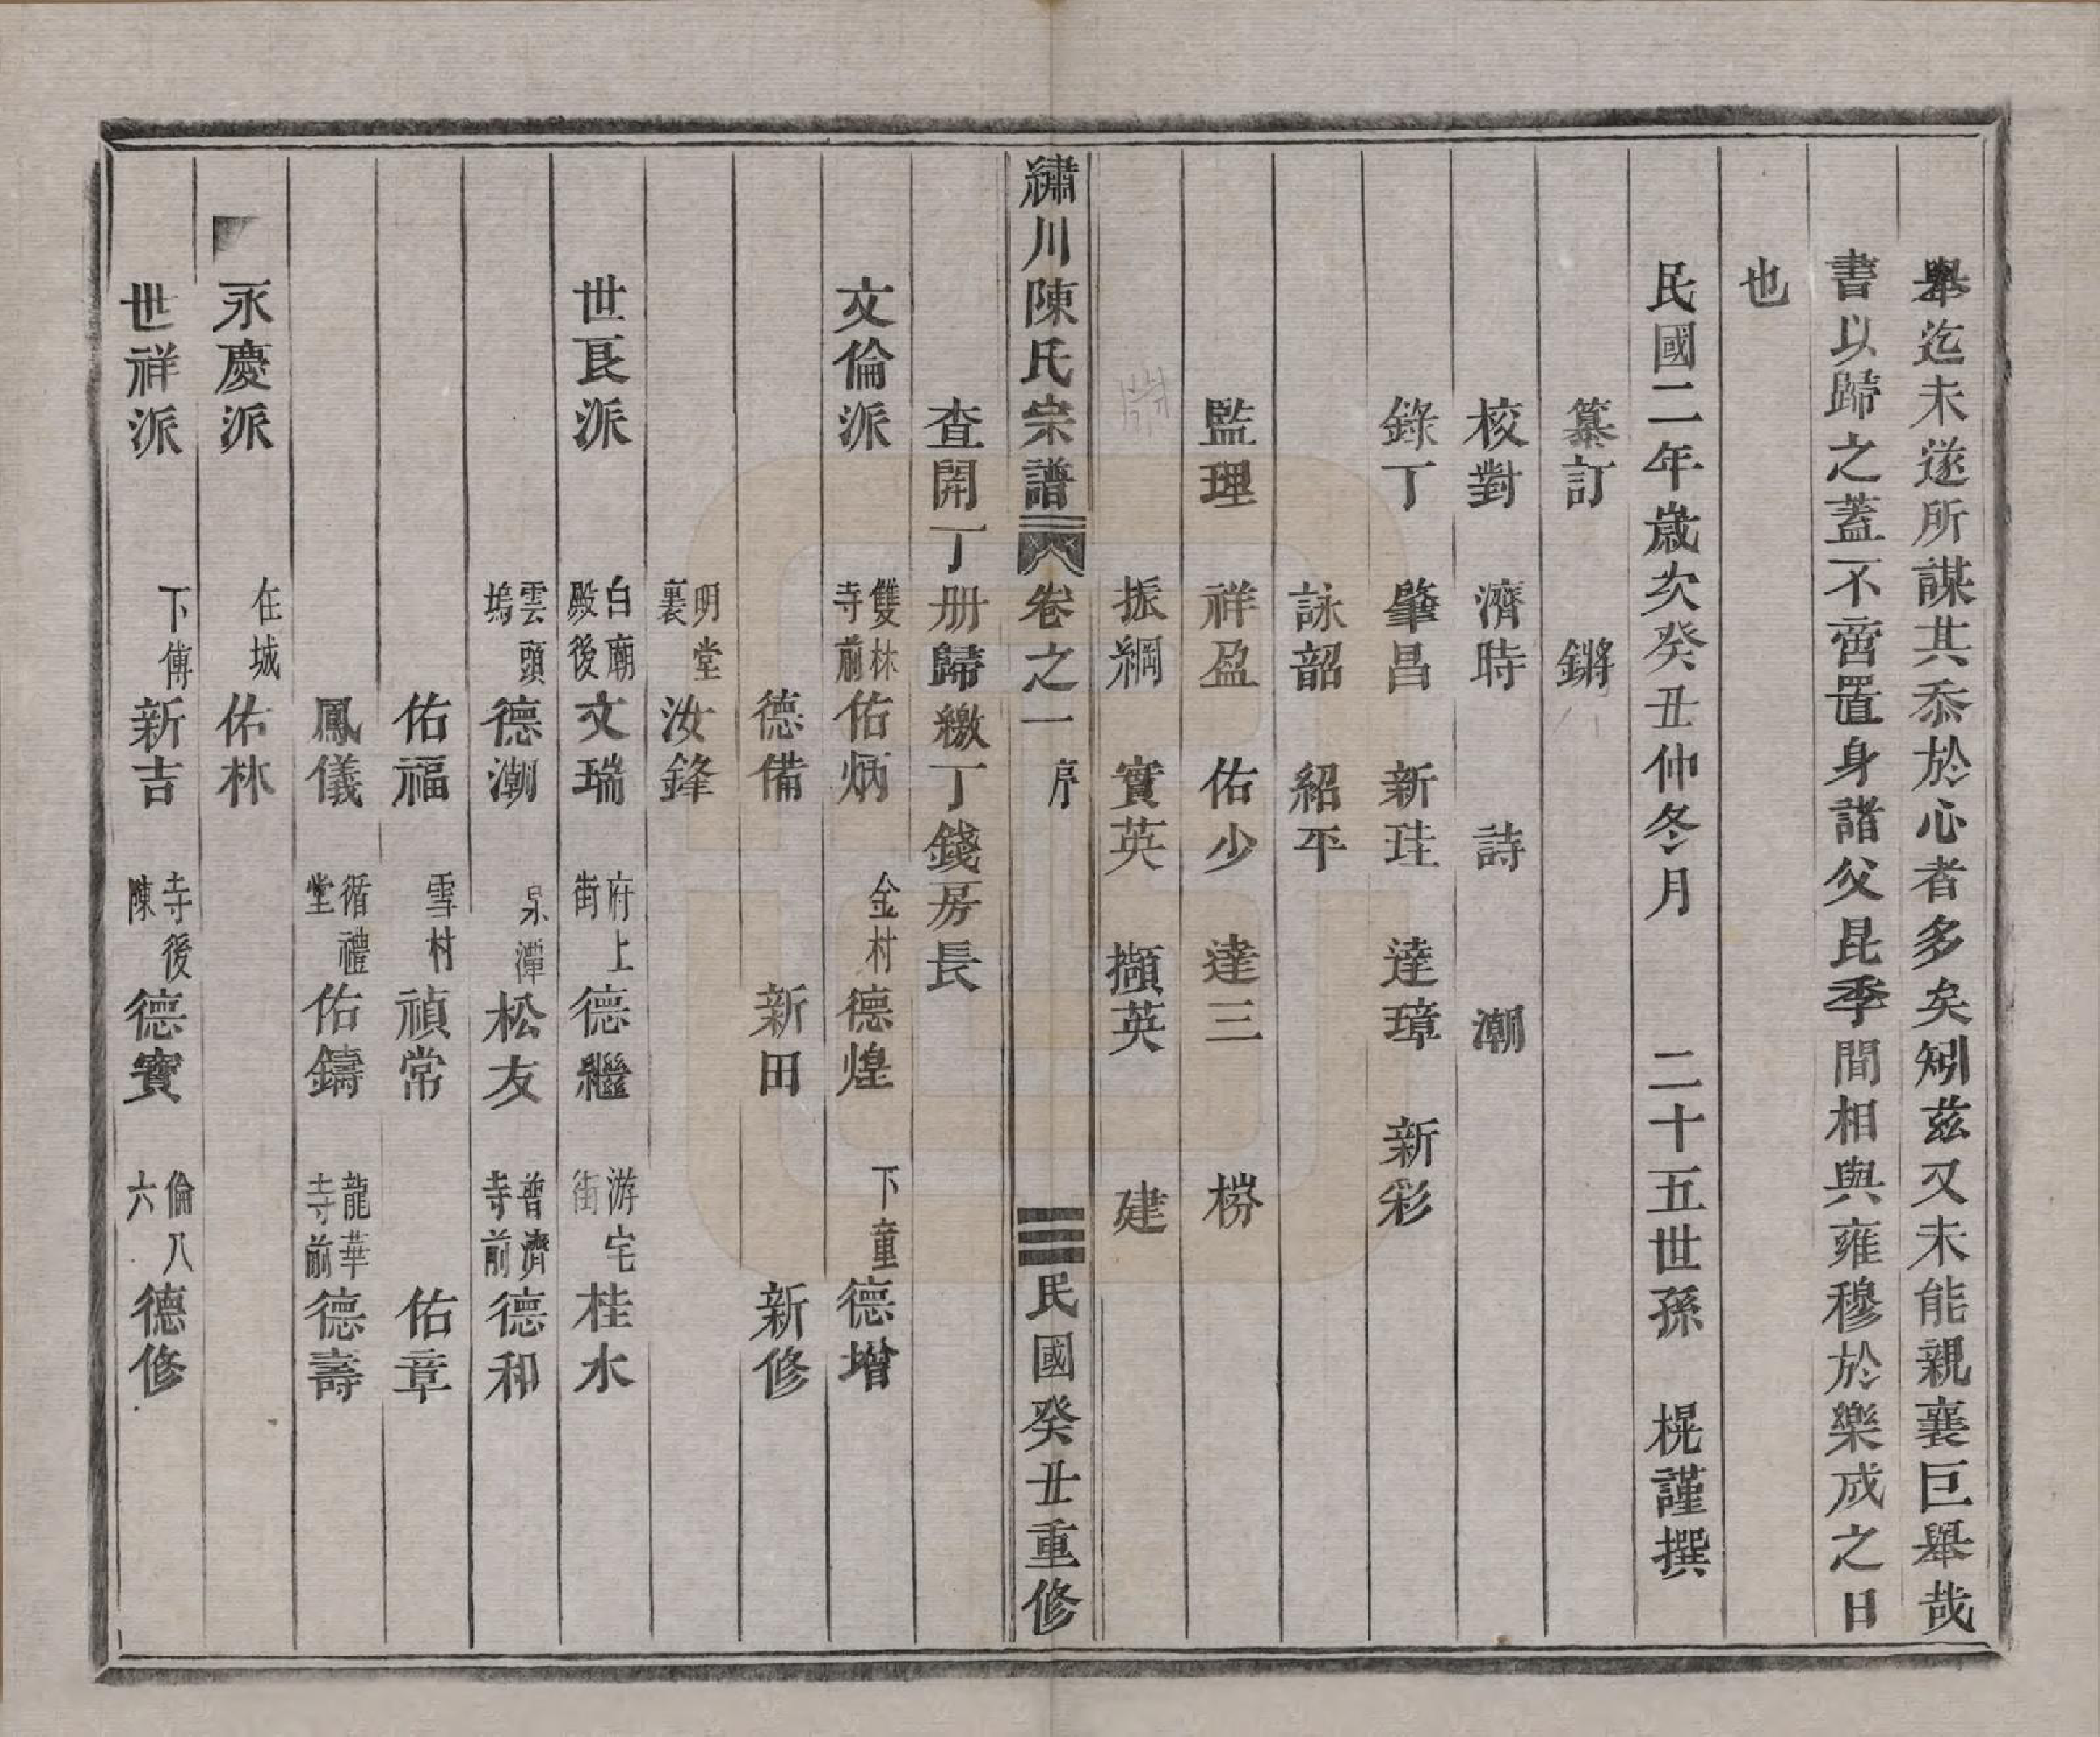 舉迄未遂所謀其忝於心者多矣矧茲又未能親襄巨舉哉
書以歸之蓋不啻置身諸父昆季間相與雍穆於樂成之日
也
民國二年歲次癸丑仲冬月　二十五世孫　榥謹撰
纂訂　鏘
校對　濟時　詩　潮
錄丁　肇昌　新珪　達璋　新彩
詠韶　紹平
監理　祥盈　佑少　達三　榜
振綱　實英　擷英　建
繡川陳氏宗譜　卷之一　序　民國癸丑重修
查開丁册歸繳丁錢房長
文倫派　雙林寺前　佑炳　金村　德煌　下童　德增
德備　新田　新修
明堂裏　汝鋒
世良派　白廟殿後　文瑞　府上街　德繼　游宅街　桂水
雲頭塢　德潮　泉潭　松友　普濟寺前　德和
佑福　雪村　禎常　佑章
鳳儀　循禮堂　佑鑄　龍華寺前　德壽
永慶派　在城　佑林
世祥派　下傅　新吉　寺後陳　德寶　倫八六　德修